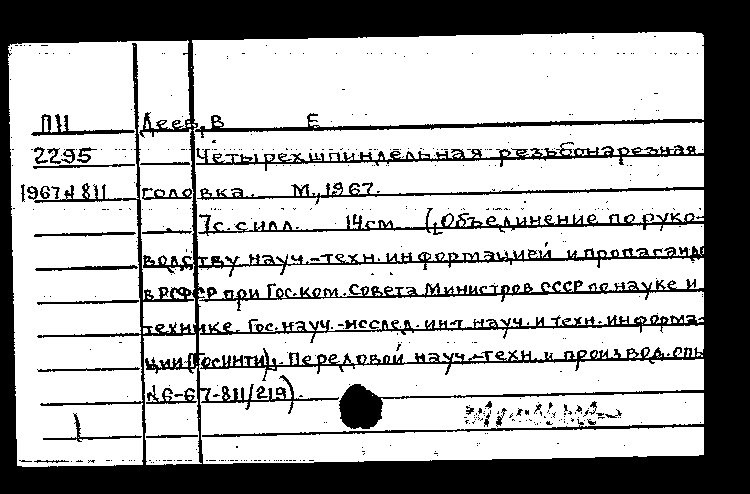 ПII Деев, В Е
2295 Четырехшпиндельная резьбонарезная
1967 г 811 головка. М., 1967.
7с. с илл. 14см. (Объединение по руко-
водству науч.-техн. информацией и пропаганд
в РСФСР при Гос. ком. Совета Министров СССР по науке и
технике. Гос. науч.-исслед. ин-т науч. и техн. информа-
ции (ГОСИНТИ). Передовой науч.-техн. и производ. опы
№6-67-811/219).